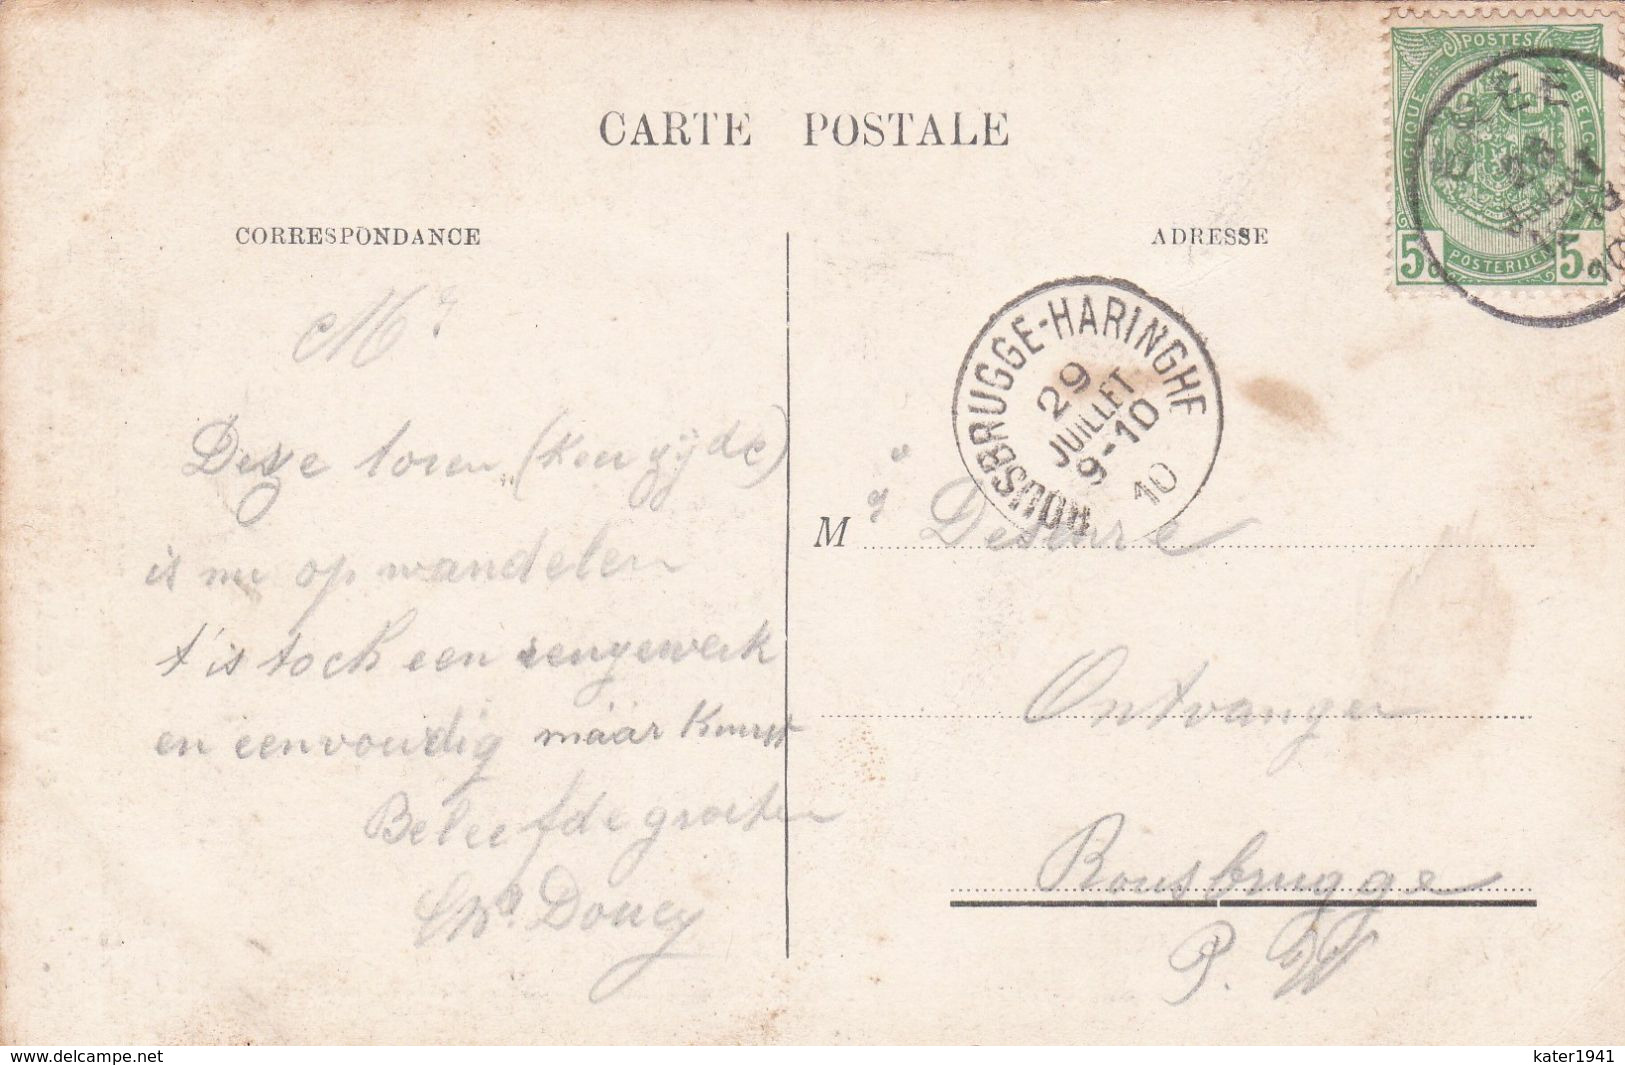 CARTE POSTALE
POSTES
BELGIQUE
BELG
5c
POSTERIJEN
5c
CORRESPONDANCE
ADRESSE
Mr
Deze toren (keer zijde)
is nu op wandelen
t'is toch een reuzewerk
en eenvoudig maar Kunst
Beleefde groeten
Doucy
ROUSBRUGGE-HARINGHE
29
JUILLET
9-10
10
M
Ontvanger
Rousbrugge
P. W
www.delcampe.net
kater1941